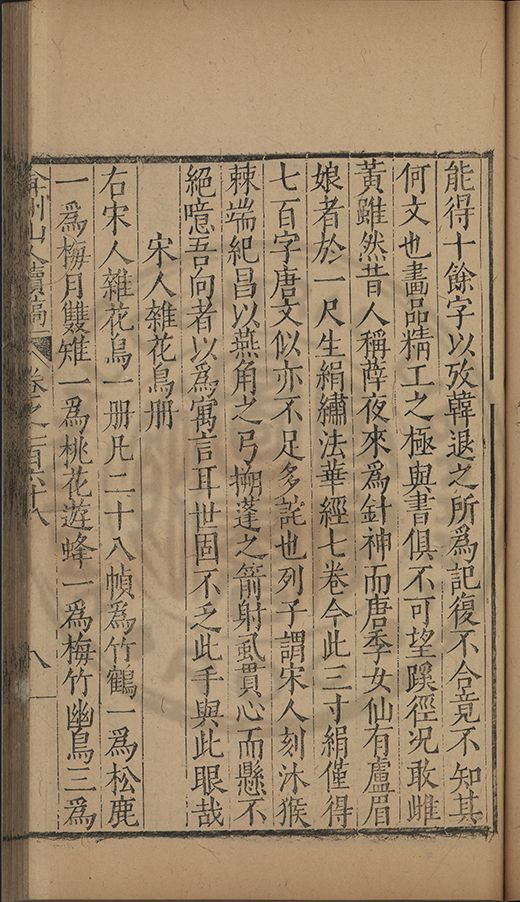 能得十餘字以攷韓退之所爲記復不合竟不知其
何文也畫品精工之極與書俱不可望蹊徑况敢雌
黃雖然昔人稱薛夜來爲針神而唐季女仙有盧眉
娘者於一尺生絹繡法華經七卷今此三寸絹僅得
七百字唐文似亦不足多詫也列子謂宋人刻沐猴
棘端紀昌以燕角之弓搠蓬之箭射虱貫心而懸不
絕噫吾向者以爲寓言耳世固不乏此手與此眼哉
宋人雜花鳥册
右宋人雜花鳥一册凡二十八幀爲竹鶴一爲松鹿
一爲梅月雙雉一爲桃花遊蜂一爲梅竹幽鳥三爲
弇州山人續稿 卷之一百六十八 八